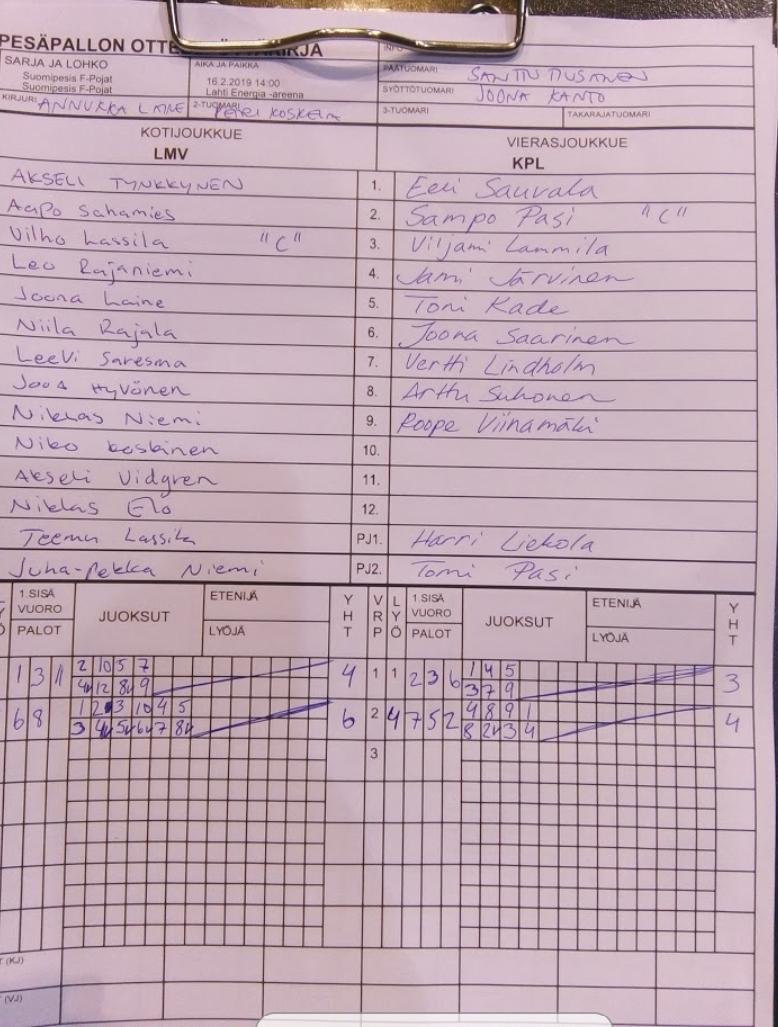 PESÄPALLON OTTE
SARJA JA LOHKO
Suomipesis F-Pojat
Suomipesis F-Pojat
AIKA JA PAIKKA
16.2.2019 14:00
Lahti Energia -areena
KIRJURI ANNUKKA LAINE
2-TUOMARI PETRI KOSKELA
INFO
PÄÄTUOMARI SANTTU
SYÖTTÖTUOMARI JOONA KANTO
3-TUOMARI
TAKARAJATUOMARI
KOTIJOUKKUE
LMV
VIERASJOUKKUE
KPL
AKSELI TYNKKYNEN 1. Eeli Sauvala
Aapo Sahamies 2. Sampo Pasi "C"
Vilho Lassila "C" 3. Viljami Lammila
Leo Rajaniemi 4. Jami Järvinen
Joona Laine 5. Toni Kade
Niila Rajala 6. Joona Saarinen
Leevi Saresma 7. Vertti Lindholm
Joona Hyvönen 8. Arttu Suhonen
Niklas Niemi 9. Roope Viinamäki
Niko Koskinen 10.
Akseli Vidgren 11.
Niklas Elo 12.
Teemu Lassila PJ1. Harri Liekola
Juha-Pekka Niemi PJ2. Tomi Pasi
1.SISÄ VUORO PALOT JUOKSUT ETENIJÄ LYÖJÄ YHT VRP LYÖ 1.SISÄ VUORO PALOT JUOKSUT ETENIJÄ LYÖJÄ YHT
1 3 11 2 10 5 7 4 1 1 2 3 6 1 4 5 3
4v 12 8v 9 3 7 9
6 8 1 2 3 10 4 5 6 2 4 7 5 2 4 8 9 1 4
3 4v 5v 6v 7 8v 8 2v 3 4
3
(KJ)
(VJ)